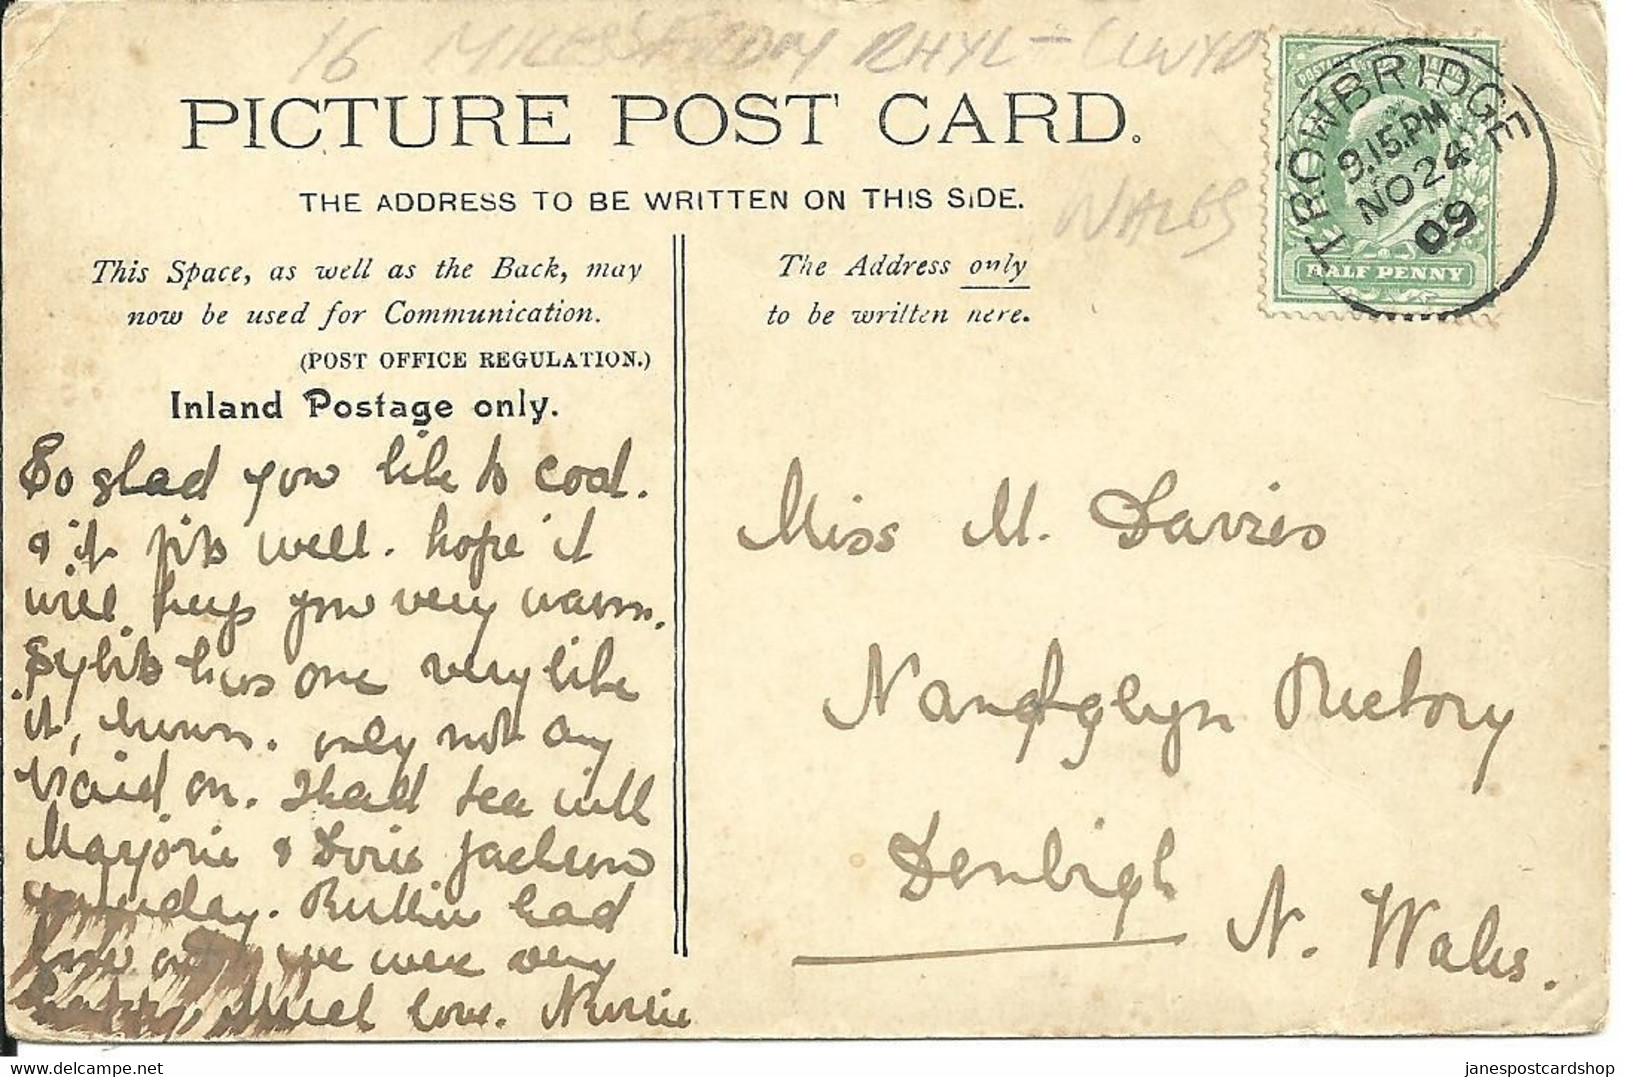 16 MILES FROM RHYL - CLWYD
WALES
PICTURE POST CARD.
THE ADDRESS TO BE WRITTEN ON THIS SIDE.
This Space, as well as the Back, may
now be used for Communication.
(POST OFFICE REGULATION.)
Inland Postage only.
The Address only
to be written here.
TROWBRIDGE
9.15.PM
NO 24
09
HALF PENNY
So glad you like ts coat.
& it fits well. hope it
will keep you very warm.
Sybil has one very like
it, brown. only not any
braid on. I had tea with
Marjorie & Doris Jackson
yesterday.
had
we were very
Much love. Nurse
Miss M. Davies
Nantglyn Rectory
Denbigh
N. Wales.
Delcampe.net
janespostcardshop